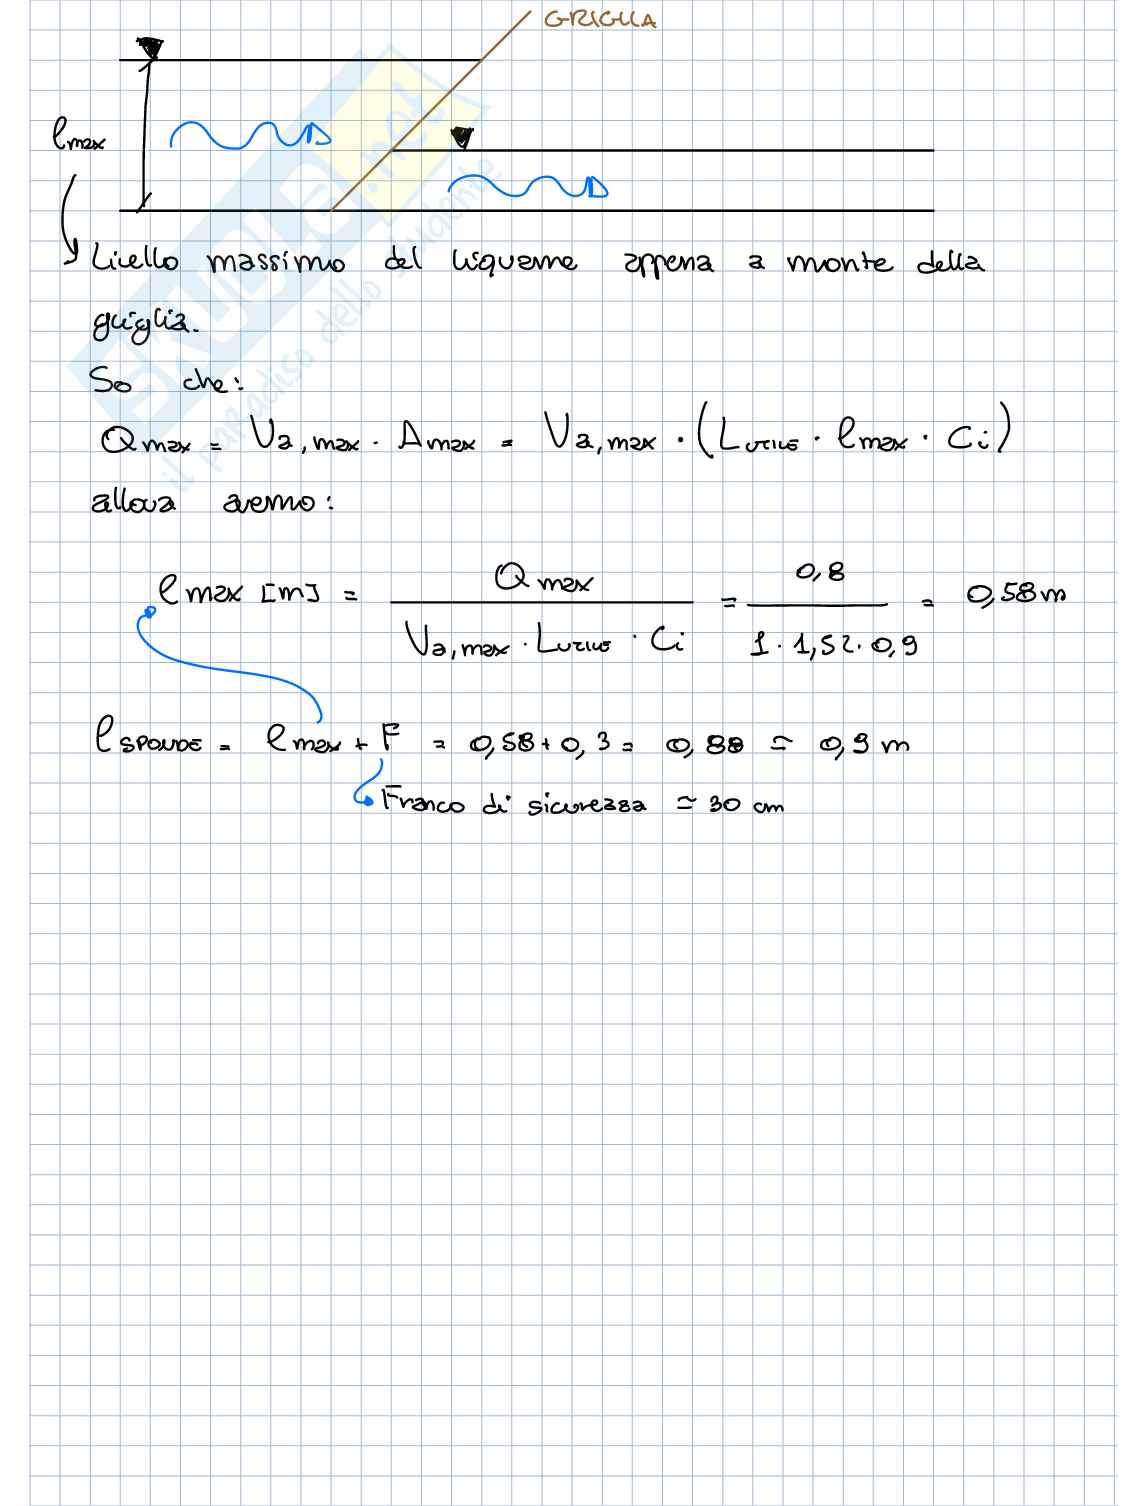 GRIGLIA
lmax
Livello massimo del liquame appena a monte della
griglia.
So che:
Qmax = Va,max · Amax = Va,max · (Lutile · lmax · Ci)
allora avremo:
lmax [m] = Qmax / (Va,max · Lutile · Ci) = 0,8 / (1 · 1,52 · 0,9) = 0,58 m
lSPONDE = lmax + F = 0,58 + 0,3 = 0,88 ≃ 0,9 m
Franco di sicurezza ≃ 30 cm
SKUOLA.net
il paradiso dello studente